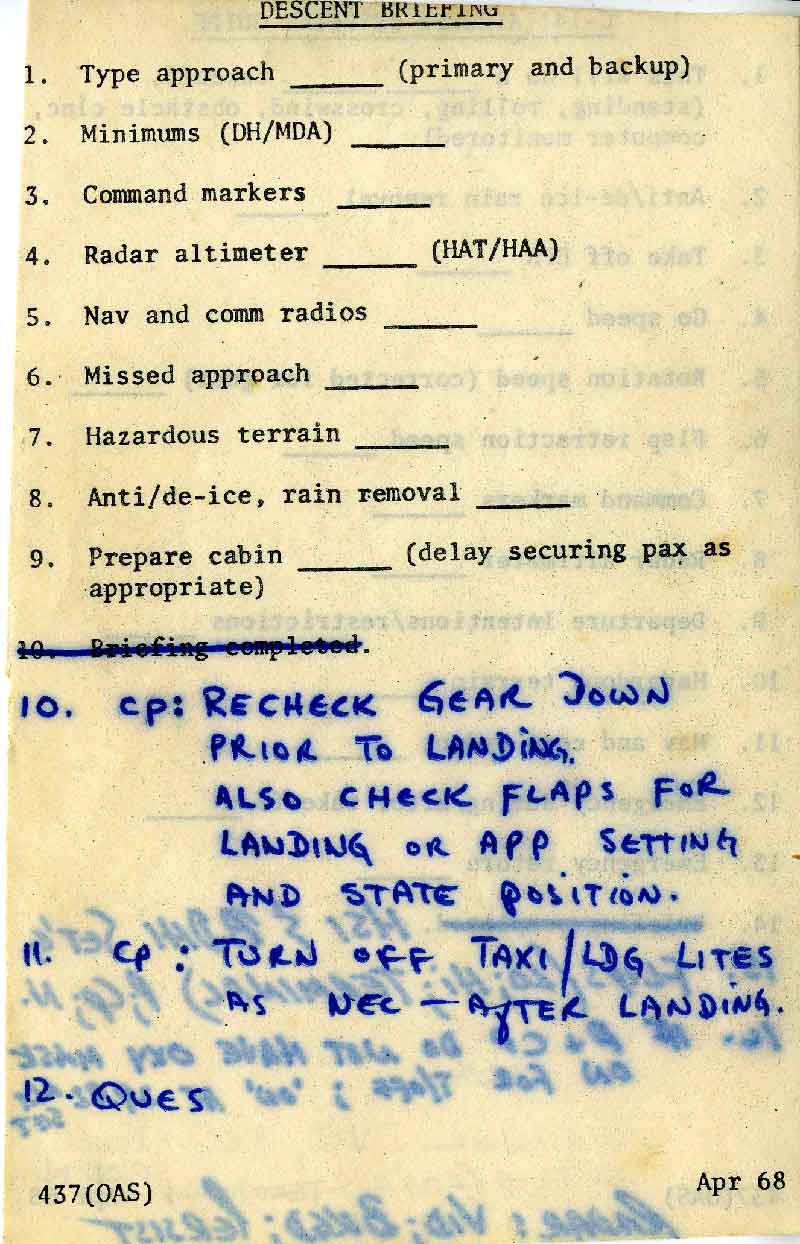 DESCENT BRIEFING
1. Type approach ______ (primary and backup)
2. Minimums (DH/MDA) ______
3. Command markers ______
4. Radar altimeter ______ (HAT/HAA)
5. Nav and comm radios ______
6. Missed approach ______
7. Hazardous terrain ______
8. Anti/de-ice, rain removal ______
9. Prepare cabin ______ (delay securing pax as
appropriate)
10. Briefing completed.
10. CP: RECHECK GEAR DOWN
PRIOR TO LANDING.
ALSO CHECK FLAPS FOR
LANDING OR APP SETTING
AND STATE POSITION.
11. CP: TURN OFF TAXI/LDG LITES
AS NEC — AFTER LANDING.
12. QUES
437(OAS)
Apr 68